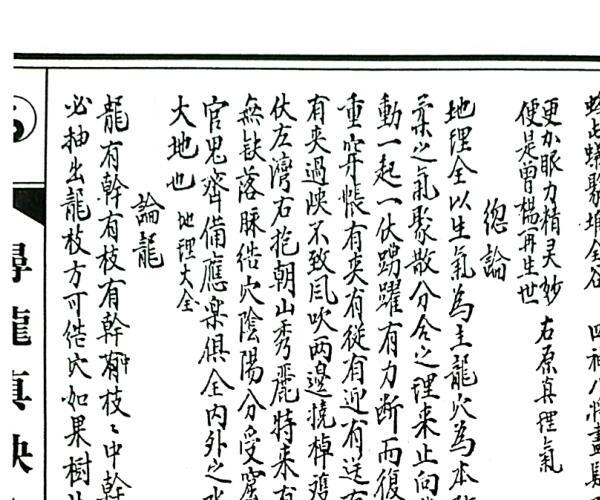 蜂占蟻聚堆全谷 四神八將盡
更加眼力精灵妙
便是曾楊再生世 右原真理氣
總論
地理全以生氣為主龍穴為本
柔之氣聚散分合之理来止向
動一起一伏踴躍有力断而復
重穿帳有夹有從有迎有送
有夹過峽不致風吹两邊撓棹
伏左灣右抱朝山秀麗特来有
無缺落脉结穴陰陽分受窟
官鬼齊備應樂俱全内外之水
大地也 地理大全
論龍
龍有幹有枝有幹中有枝〻中幹
必抽出龍枝方可结穴如果樹
尋龍真訣